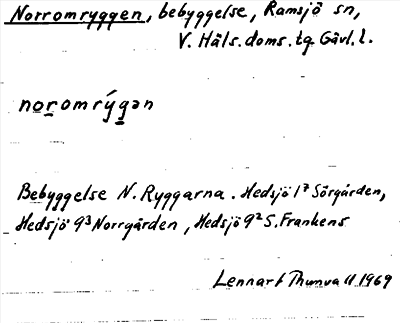 Norromryggen, bebyggelse, Ramsjö sn,
V. Häls. doms. tg Gävl. l.
noromrýgən
Bebyggelse N. Ryggarna. Hedsjö 1⁷ Sörgården,
Hedsjö 9³ Norrgården, Hedsjö 9² S. Frankens
Lennart Thunvall 1969